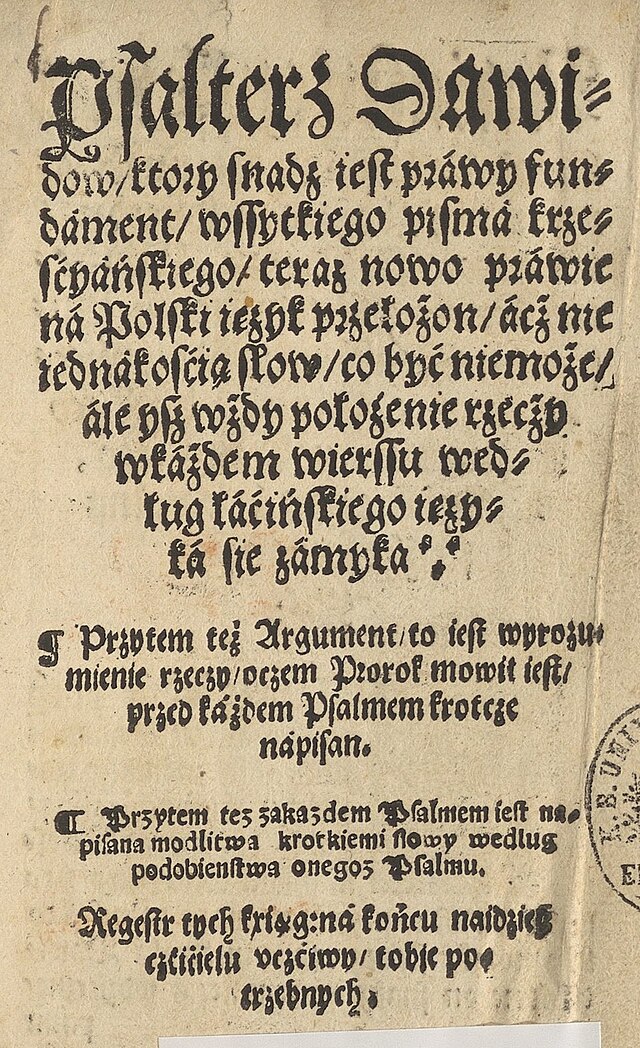 Psalterz Dawi⸗
dow/ktory snadz iest práwy fun⸗
dáment/ wssytkiego pismá krze⸗
sćyáńskiego/ teraz nowo práwie
ná Polski ięzyk przełożon/ ácż nie
iednákośćią słow/ co być niemoże/
ále ysz wżdy położenie rzecży
wkáżdem wierssu wed⸗
ług łáćińskiego ięzy⸗
ká sie zámyka
¶ Przytem też Argument/to iest wyrozu⸗
mienie rzeczy/oczem Prorok mowił iest/
przed każdem Psalmem krotcze
nápisan.
¶ Przytem tez zakazdem Psalmem iest na⸗
pisana modlitwa krotkiemi slowy wedlug
podobienstwa onegoz Psalmu.
Regestr tych kxiąg:ná końcu naidziesz
czćićielu vczćiwy/ tobie po⸗
trzebnych.